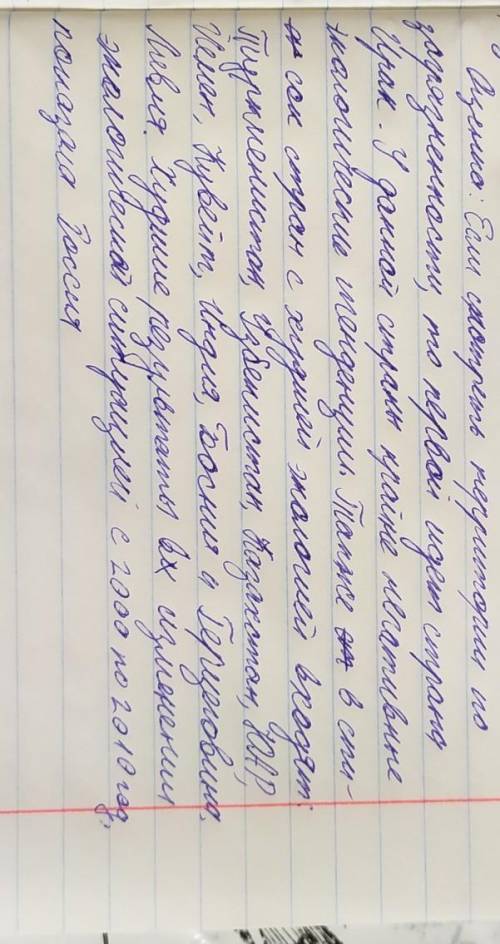 Оценка: Если смотреть территории по
загрязненности, то первой идет страна
Ирак. У данной страны крайне негативние
экологические тенденции. Также в спи-
сок стран с худшей экологией входят:
Туркменистан, Узбекистан, Казахстан, ЮАР,
Йемен, Кувейт, Индия, Босния и Герцеговина,
Ливия. Худшие результаты в их изменении
экологической ситуацией с 2000 по 2010 год,
показала Россия